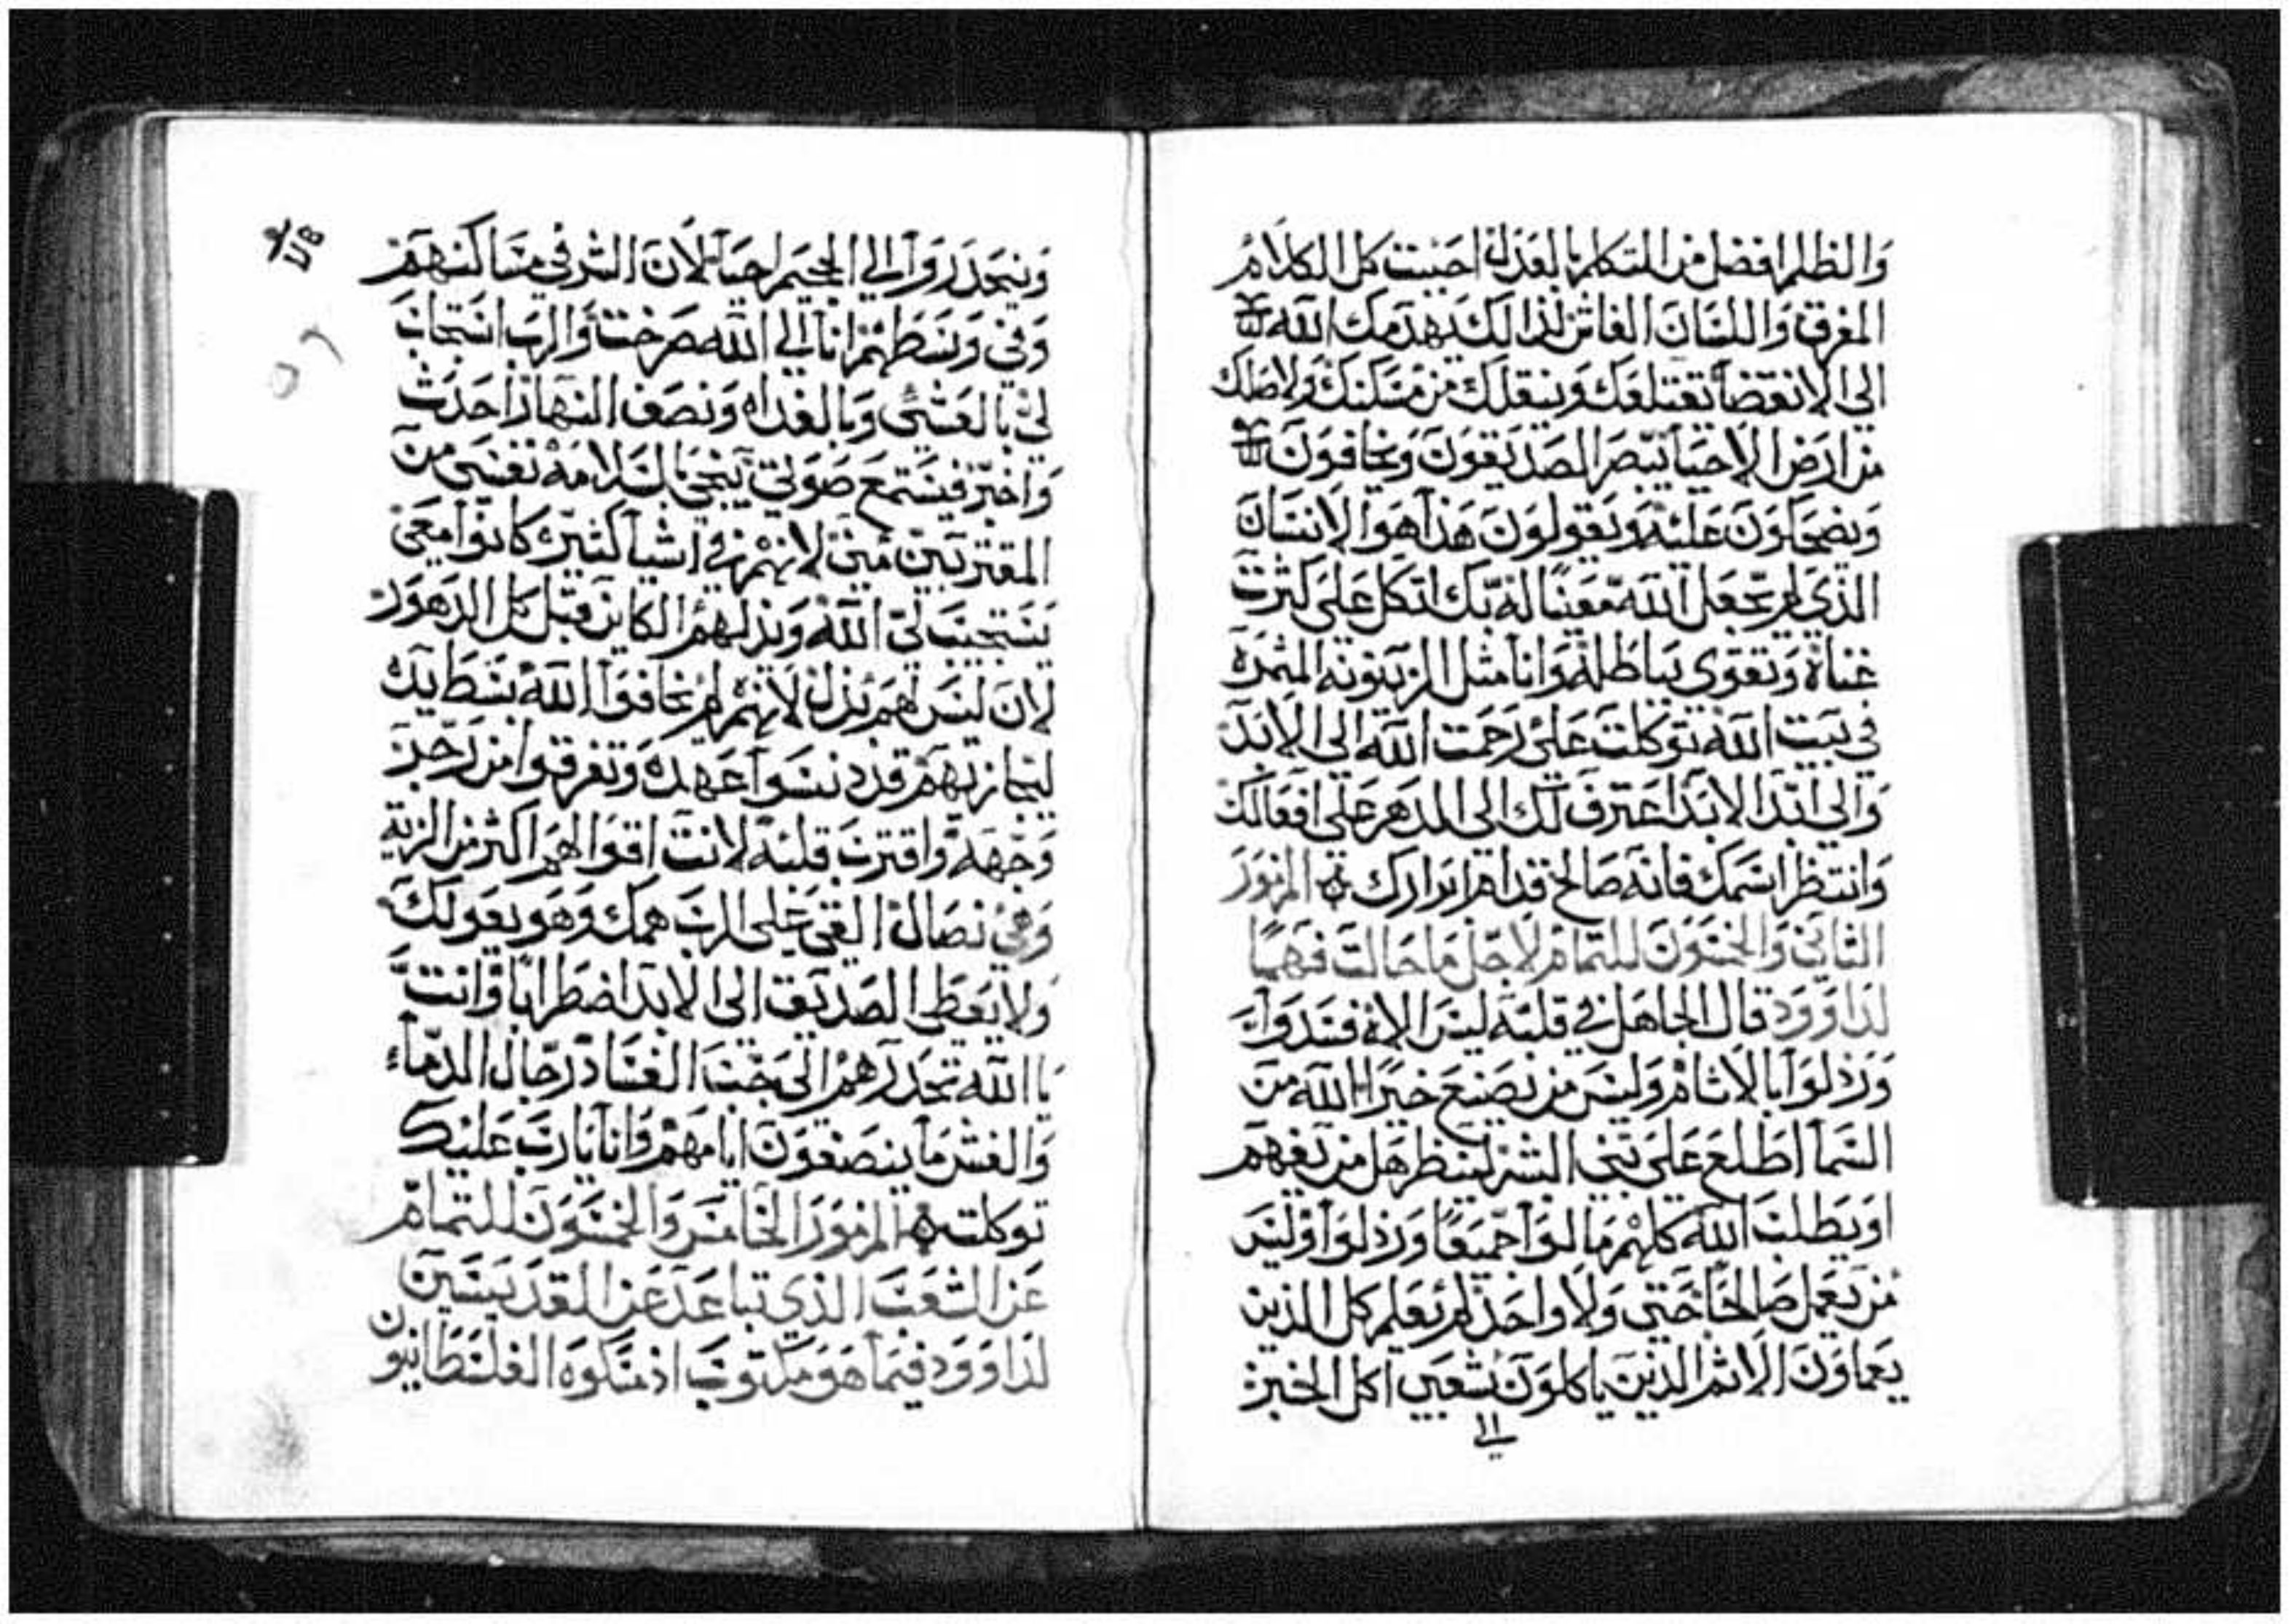 والظلم افضل من التكلم بالعدل احببت كل الكلام
المغرق واللسان الغاش لذالك يهدمك الله
الى الانقضا يقتلعك وينقلك من مسكنك واصلك
من ارض الاحيا يبصر الصديقون ويخافون
ويضحكون عليه ويقولون هذا هوا الانسان
الذي لم يجعل الله معينا له بك اتكل على كثرت
غناة وتقوى بباطلة وانا مثل الزيتونه المثمرة
في بيت الله توكلت على رحمت الله الى الابد
والى ابد الابد اعترف لك الى الدهر على افعالك
وانتظر اسمك فانه صالح قدام ابرارك المزمور
الثاني والخمسون للتمام لاجل ما حالت فهما
لداوود قال الجاهل في قلبه ليس الاه فسدوا
ورذلوا بالاثام وليس من يصنع خيرا الله من
السما اطلع على بني البشر لينظر هل من يفهم
او يطلب الله كلهم مالوا جميعا ورذلوا وليس
من يعمل صالحا حتى ولا واحد لم يعلم كل الذين
يعملون الاثم الذين ياكلون شعبي اكل الخبز
١١
وينحدروا الى الجحيم احيا لان الشر في مساكنهم
وفي وسطهم انا الى الله صرخت والرب استجاب
لي بالعشي وبالغداه ونصف النهار احدث
واخبر فيسمع صوتي ينجي بالسلامه نفسي من
المقتربين مني لانهم في اشيا كثيره كانوا معي
يستجيب لي الله ويذلهم الكاين قبل كل الدهور
لان ليس لهم بذل لانهم لم يخافوا الله بسط يده
ليجازيهم قد دنسوا عهده وتفرقوا من رجز
وجهه واقترب قلبه لانت اقوالهم اكثر من الزيت
وهي نصال القي على الرب همك وهو يعولك
ولا يعطي الصديق الى الابد اضطرابا وانت
يا الله تحدرهم الى جب الفساد رجال الدماء
والغش ما ينصفون ايامهم وانا يارب عليك
توكلت المزمور الخامس والخمسون للتمام
عن الشعب الذي تباعد عن القديسين
لداوود فيما هو مكتوب اذ مسكوه الفلسطانيون